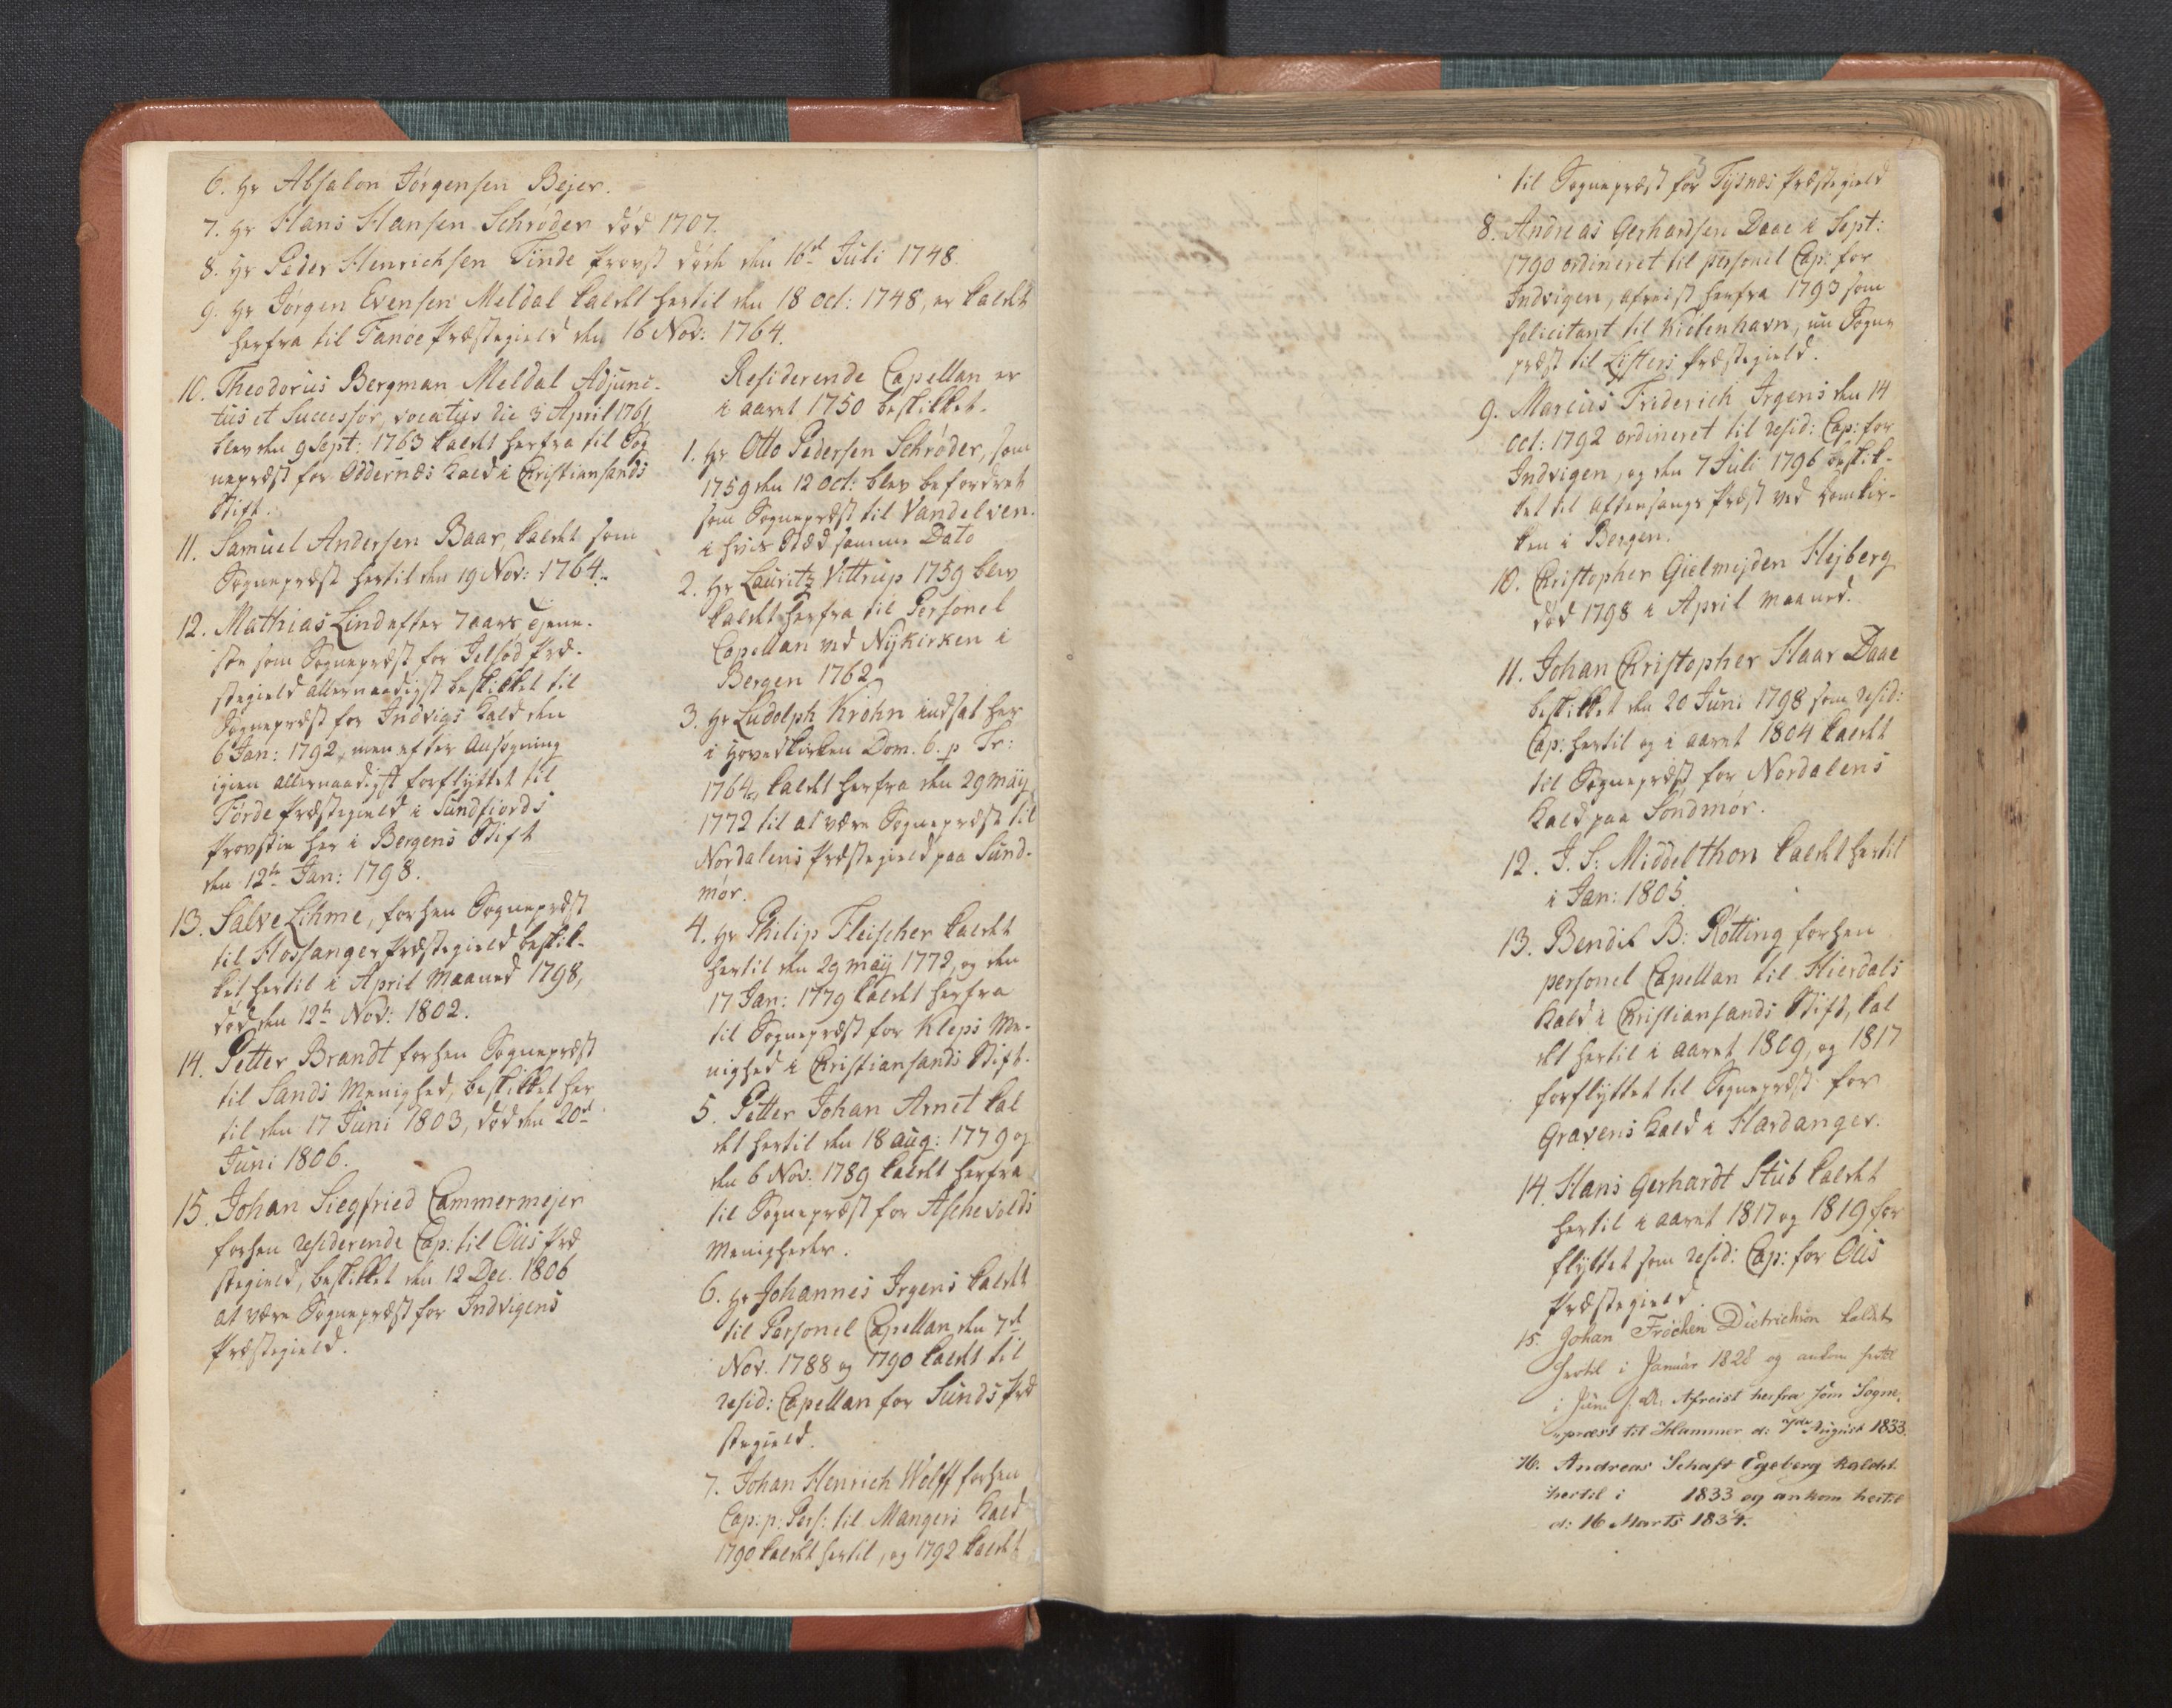 6. Hr Absalon Jørgensen Bejer.
7. Hr Hans Hansen Schrøder død 1707.
8. Hr Peder Henrichsen Finde Provst døde den 16d Juli 1748.
9. Hr Jørgen Evensen Meldal kaldet hertil den 18 oct: 1748, er kaldet
herfra til Fanøe Præstegield den 16 Nov: 1764.
10. Theodorus Bergman Meldal Adjunc-
tus et Successor, vocatus die 3 April 1761,
blev den 9 Sept: 1763 kaldet herfra til Sog
nepræst for Oddernæs Kald i Christiansands
Stift.
11. Samuel Andersen Baar, kaldet som
Sognepræst hertil den 19 Nov: 1764.
12. Mathias Lind efter 7 aars Tjene-
ste som Sognepræst for Jelsød Præ-
stegield allernaadigst beskikket til
Sognepræst for Indvigs Kald den
6 Jan: 1792, men efter Ansøgning
igien allernaadigst forflyttet til
Førde Præstegield i Sundfiords
Provstie her i Bergens Stift
den 12te Jan: 1798.
13. Salve Lihme, forhen Sognepræst
til Hossanger Præstegield beskik-
ket hertil i April Maaned 1798,
død den 12te Nov: 1802.
14. Petter Brandt forhen Sognepræst
til Sands Menighed, beskikket her
til den 17 Juni 1803, død den 20d
Juni 1806.
15. Johan Siegfried Cammermejer
forhen residerende Cap: til Ous Præ
stegield, beskikket den 12 Dec. 1806
at være Sognepræst for Indvigens
Præstegield.
Residerende Capellan er
i aaret 1750 beskikket.
1. Hr Otto Pedersen Schrøder, som
1759 den 12 Oct: blev befordret
som Sognepræst til Vandelven.
i hvis Stæd samme Dato
2. Hr Lauritz Vittrup 1759 blev
kaldet herfra til Personel
Capellan ved Nykirken i
Bergen 1762
3. Hr Ludolph Krohn indsat her
i Hovedkirken Dom. 6. p Tr:
1764, kaldet herfra den 29 Maÿ
1772 til at være Sognepræst til
Nordalens Præstegield paa Sund-
mør.
4. Hr Philip Fleischer kaldet
hertil den 29 maÿ 1772, og den
17 Jan: 1779 kaldet herfra
til Sognepræst for Kleps Me-
nighed i Christiansands Stift.
5. Petter Johan Arnet kal
det hertil den 18 aug: 1779 og
den 6 Nov: 1789 kaldet herfra
til Sognepræst for Aschevolds
Menigheder.
6. Hr Johannes Irgens kaldet
til Personel Capellan den 7d
Nov. 1788 og 1790 kaldet til
resid: Capellan for Sunds Præ
stegield.
7. Johan Henrich Wolff forhen
Cap: p: Pers: til Mangers Kald
1790 kaldet hertil, og 1792 kaldet
til Sognepræst for Tysnæs Præstegield
8. Andreas Gerhardsen Daae i Sept:
1790 ordineret til personel Cap: for
Indvigen, afreist herfra 1793 som
solicitant til Kiøbenhavn, nu Sogne
præst til Lysters Præstegield.
9. Marcus Friderich Irgens den 14
Oct: 1792 ordineret til resid: Cap: for
Indvigen, og den 7 Juli 1796 beskik-
ket til aftensangs Præst ved Domkir-
ken i Bergen.
10. Christopher Gielmejden Hejberg
død 1798 i April Maaned.
11. Johan Christopher Haar Daae
beskikket den 20 Juni 1798 som resid:
Cap: hertil og i aaret 1804 kaldet
til Sognepræst for Nordalens
Kald paa Søndmør.
12. J. S: Middelthon kaldet hertil
i Jan: 1805.
13. Bendix B: Røtting forhen
personel Capellan til Hierdals
Kald i Christiansands Stift, kal
det hertil i aaret 1809, og 1817
forflyttet til Sognepræst for
Gravens Kald i Hardanger.
14. Hans Gerhardt Stub kaldet
hertil i aaret 1817 og 1819 for
flyttet som resid: Cap: for Ous
Præstegield.
15. Johan Frøchen Dietrichson kaldet
hertil i Januar 1828 og ankom hertil
i Juni s. A. Afreist herfra som Sogne-
præst til Hammer d: 7de August 1833.
16. Andreas Schaft Egeberg kaldet
hertil i 1833 og ankom hertil
d: 16 Marts 1834.